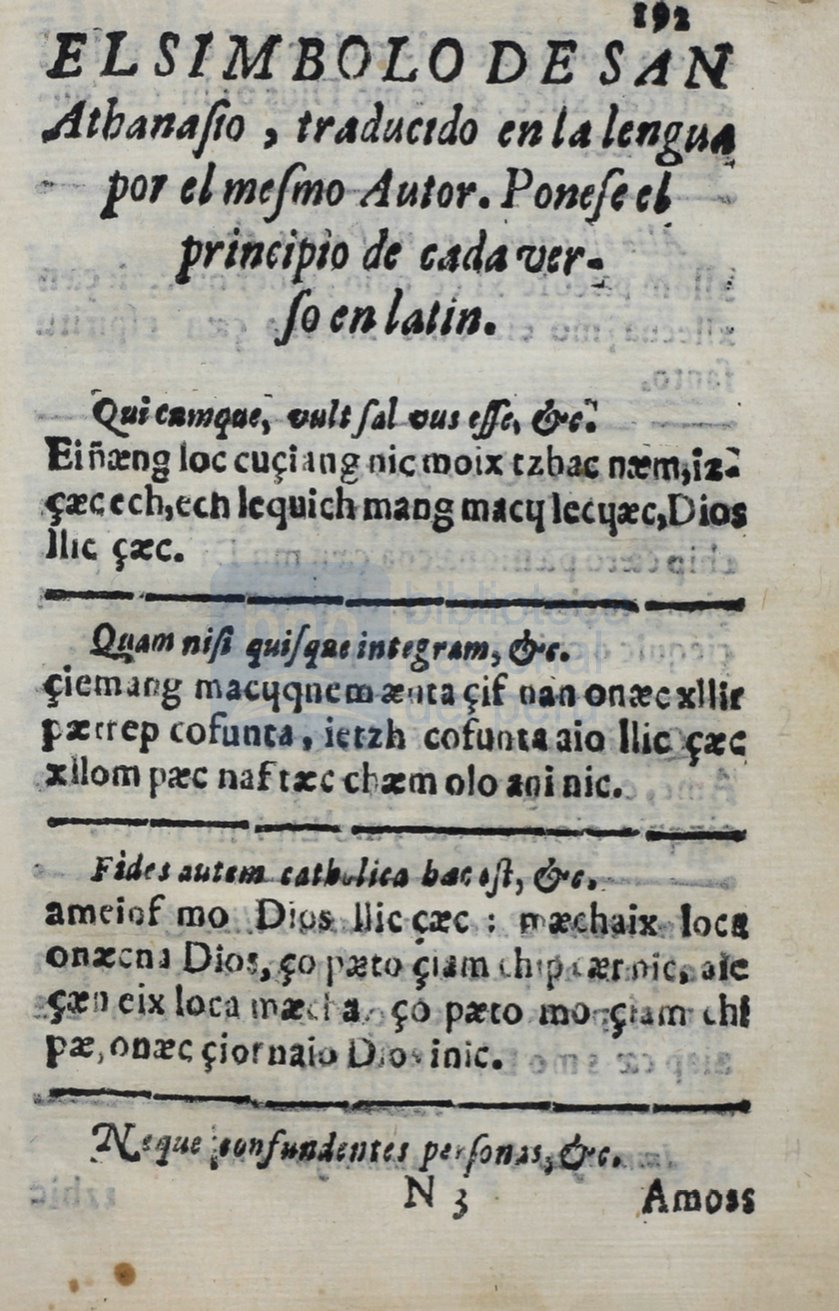 192
EL SIMBOLO DE SAN
Athanaſio, traducido en la lengua
por el meſmo Autor. Poneſe el
principio de cada ver-
ſo en latin.
Quicumque, vult ſalvus eſſe, &c.
Eiñæng loc cuçiang nic moix tzhac næm, iz-
çæc ech, ech lequich mang macq lecqæc, Dios
llic çæc.
Quam niſi quiſque integram, &c.
çiemang macqqnem ænta çif nan onæc xllir
pærrep cofunta, ietzh cofunta aio llic çæc
xllom pæc naf tæc chæm olo aninic.
Fides autem catholica hæc eſt, &c.
ameiof mo Dios llic çæc : mæchaix loca
onæcna Dios, ço pæto çiam chip cærnic, aie
çæn eix loca mæcha, ço pæto mo çiam chi
pæ, onæc çiornaio Dios inic.
Neque confundentes perſonas, &c.
N 3 Amoss